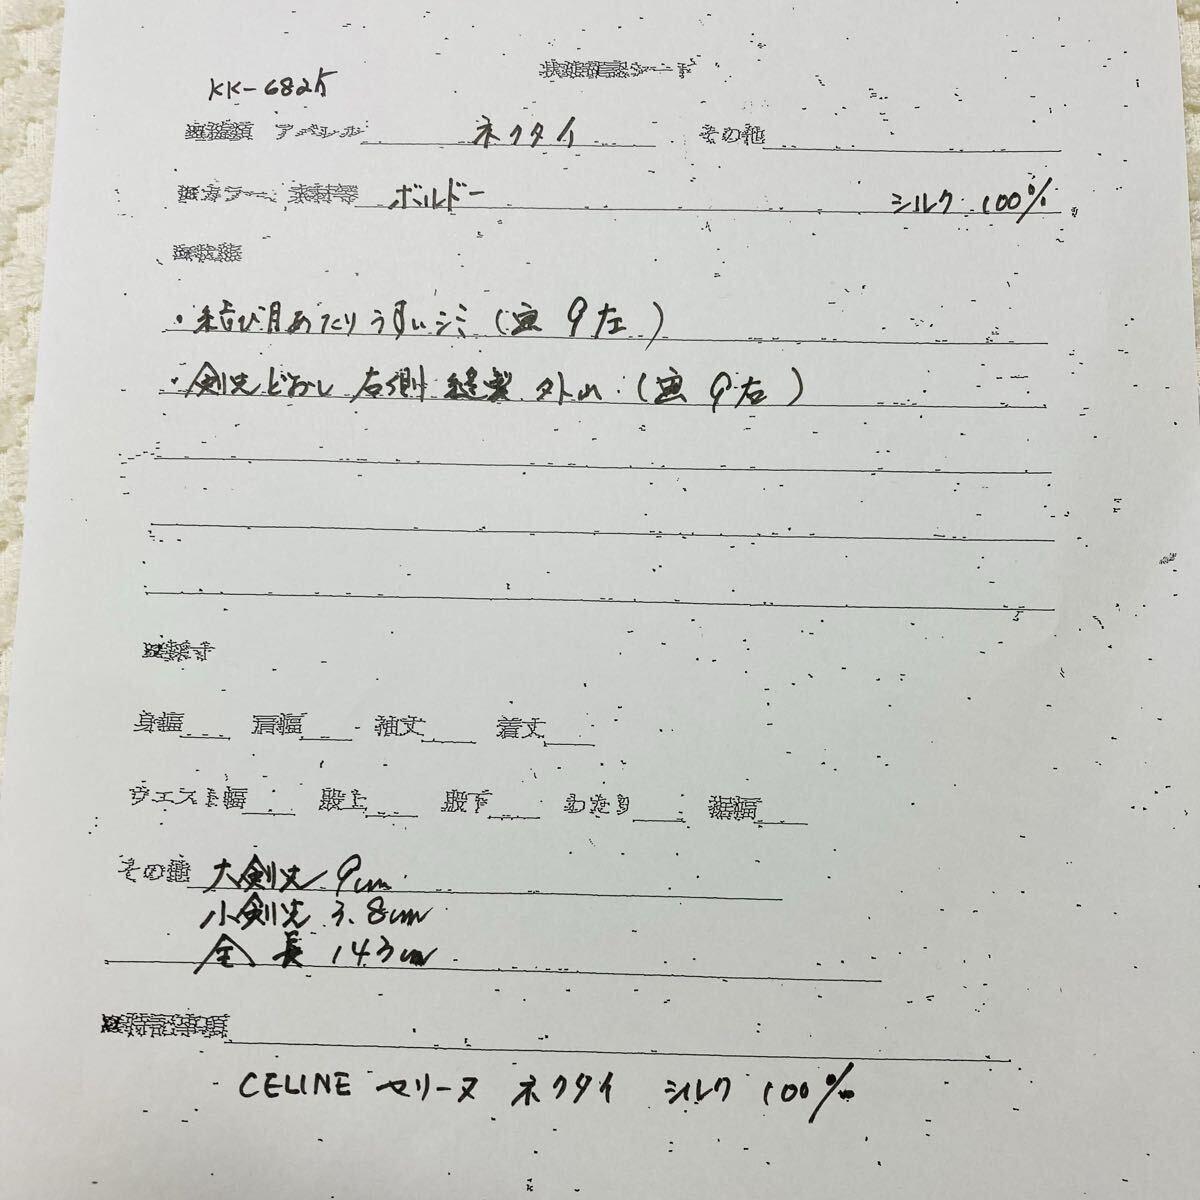 状態確認シート
KK-682K
■種類 アパレル ネクタイ その他
■カラー、素材等 ボルドー シルク 100%
■状態
・結び目あたりうすいシミ(画9左)
・剣先どおし 右側 縫製 外れ(画9右)
■採寸
身幅 肩幅 袖丈 着丈
ウエスト幅 股上 股下 わたり 裾幅
その他 大剣先 9cm
小剣先 3.8cm
全長 143cm
■特記事項
CELINE セリーヌ ネクタイ シルク 100%